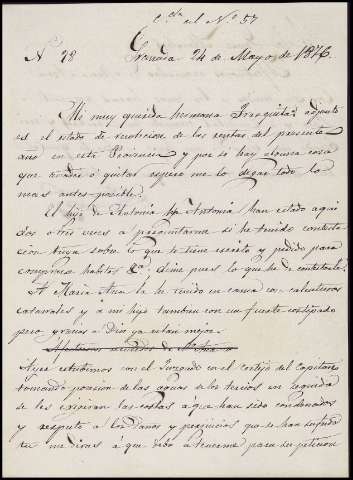 C.da el Nº 57
Nº 28 Granada 24 de Mayo de 1876.
Mi muy querida hermana Frasquita: adjunto
es el estado de rendicion de las rentas del presente
año en esta Provincia y por si hay alguna cosa
que añadir ó quitar espero me lo digas todo lo
mas antes posible.
El hijo de Antonia Antonia han estado aqui
dos ó tres veces a preguntarme si he tenido contesta-
cion tuya sobre lo que te tiene escrito y pedido para
comprarse habitos &ª dime pues lo que he de contestarle.
A Maria Ana la he tenido en cama con calenturas
catarrales y á mi hijo tambien con un fuerte costipado
pero gracias á Dios ya estan mejor.
Ayer estubimos con el Juzgado en el cortijo del
tomando posesion de las aguas de los tercios en seguida
se les exigiran las costas á que han sido condenados
y respecto á los daños y perjuicios que se han sufrido
tu me diras á que debo atenerme para su peticion